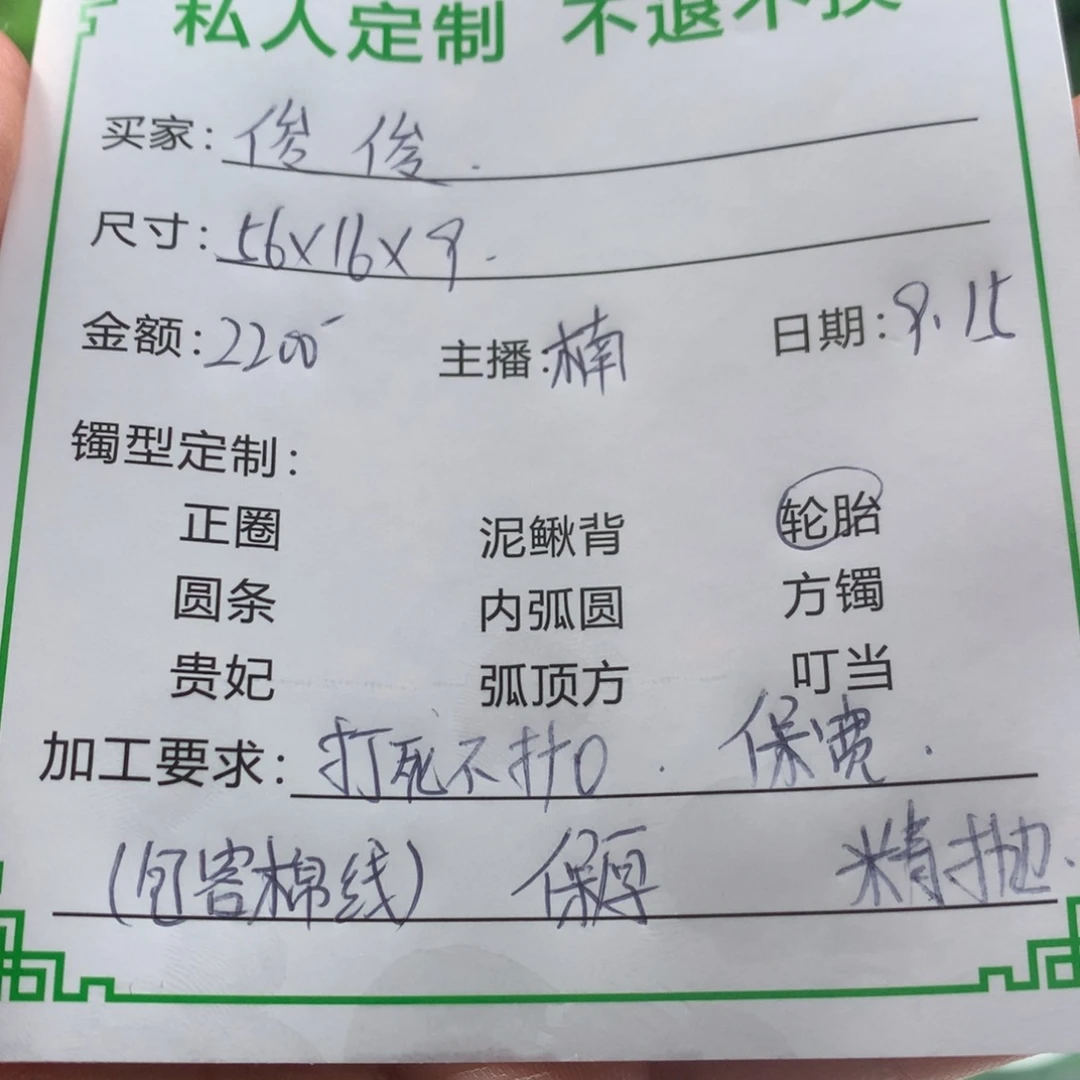 私人定制 不退不换
买家：俊俊.
尺寸：56×16×8.
金额：2200 主播：楠 日期：8.15
镯型定制：
正圈 泥鳅背 轮胎
圆条 内弧圆 方镯
贵妃 弧顶方 叮当
加工要求：打死不扩口. 保宽.
（包容棉线） 保厚 精抛.